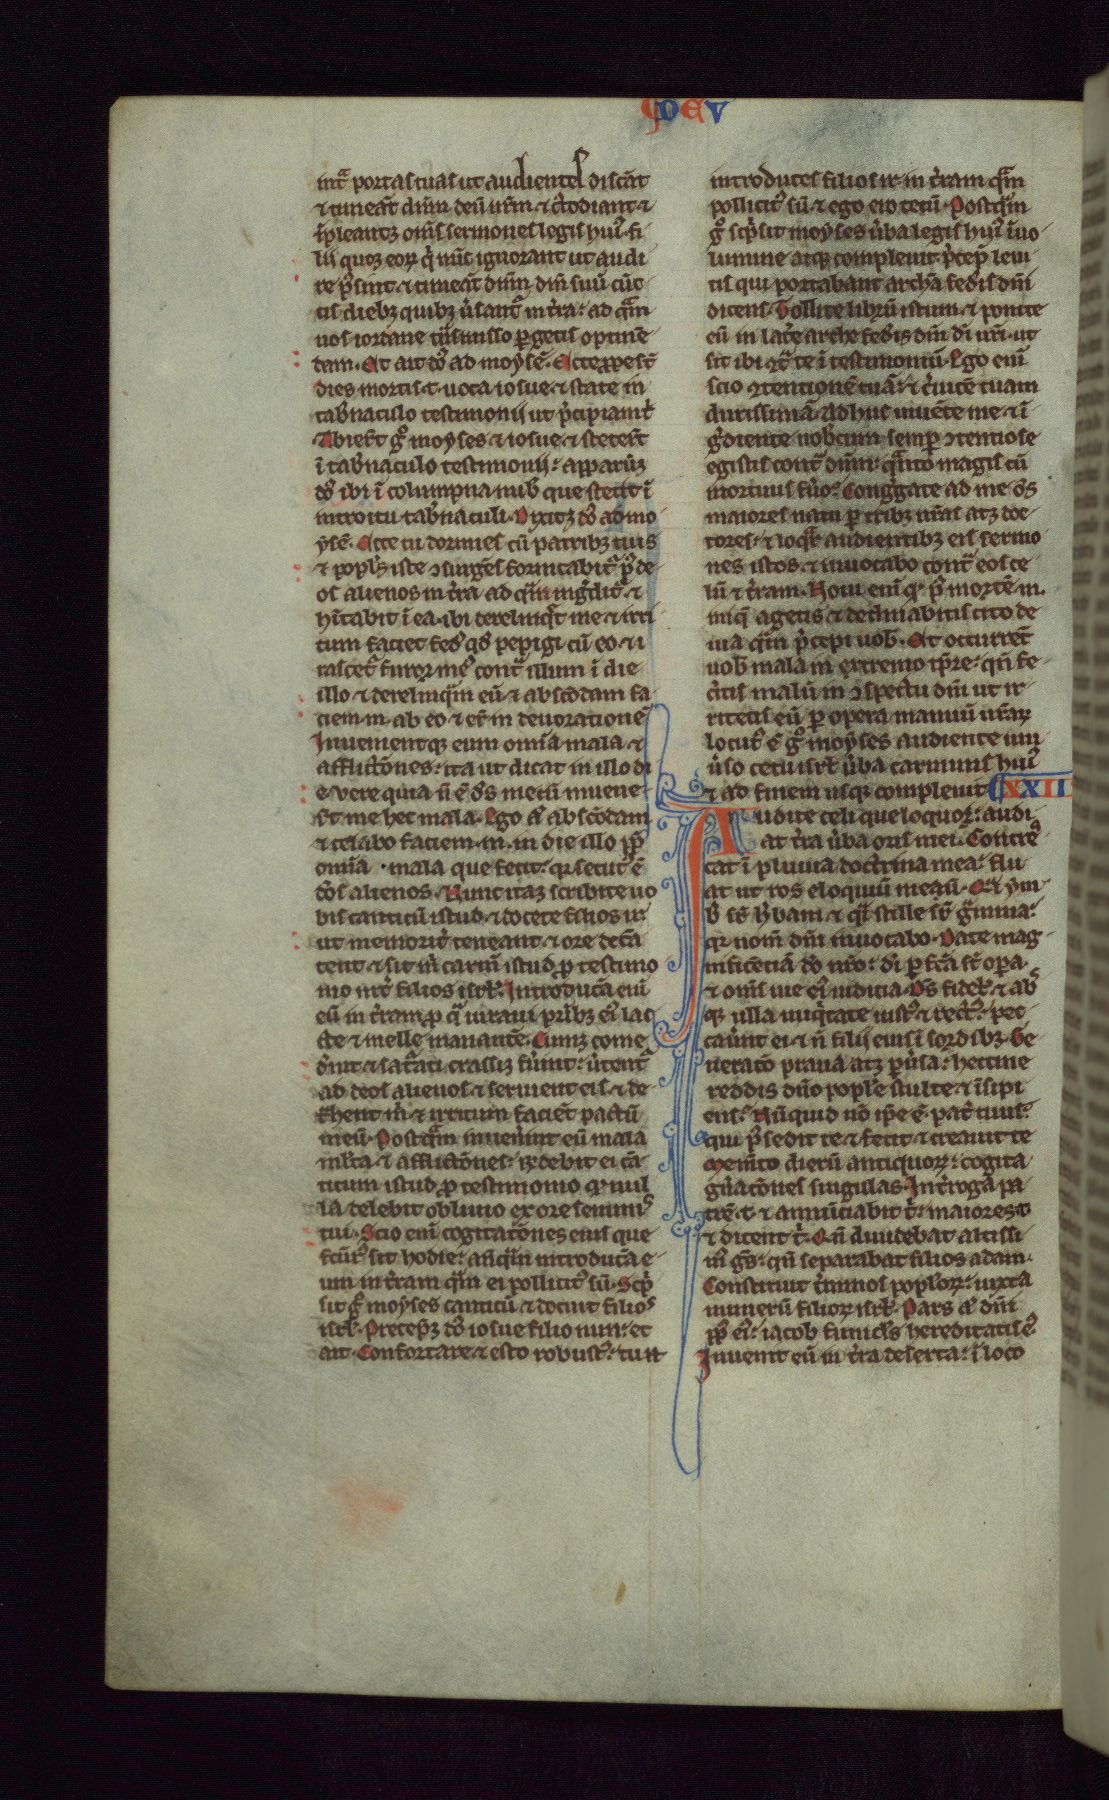 DEV
intᷓ portas tuas ut audientes discāt
⁊ timeāt dn̄m deū ur̄m ⁊ c᷑todiant ⁊
īpleantqꝫ om̄s sermones legis huiꝰ fi
lii quoqꝫ eoꝝ q̇ nūc ignorant ut audi
re p̄sint ⁊ timeāt dn̄m dm̄ suū cūc
tis diebꝫ quibꝫ ůsant᷑ in t̄ra ad quā
uos iordane t̄nsmisso ꝑgetis optinē
dam. Et ait dn̄s ad moysē. Ecce ꝓpe s̄t
dies mortis t. uoca iosue ⁊ state in
tab̄naculo testimonii ut p̄cipiam ei
Abier̄t gͦ moyses ⁊ iosue ⁊ stetert̄
ī tab̄naculo testimonii: apparuitqꝫ
dn̄s ibi ī columpna nub̄ que stetit ī
introitu tab̄naculi. Dixitqꝫ dn̄s ad mo
ysē. Ecce tu dormies cū patribꝫ tuis
⁊ popl̄s iste ↄsurges fornicabit᷑ pꝰ de
os alienos in t̄ra ad qm̄ ingdit᷑ ⁊
hītabit ī ea. ibi derelinq̄t me ⁊ irri
tum faciet fedꝰ qd̄ pepigi cū eo ⁊ i
rascet᷑ furor mꝰ cont̄ illum ī die
illo ⁊ derelinquā eū ⁊ abscōdam fa
ciem m̄. ab eo ⁊ er̄ in deuorationē
Inuenientqꝫ eum omīa mala ⁊
afflictōnes: ita ut dicat in illo di
e vere quia n̄ ē ds̄ mecū inuene
r̄t me hec mala. Ego at̄ abscōdam
⁊ celabo faciem m̄. in die illo ꝓpt̄
omīa mala que fecit: qr secut᷑ ē
dōs alienos. Nunc itaqꝫ scribite uo
bis canticū istud ⁊ docete filios ir̄
ut memorit̄ teneant ⁊ ore decā
tent ⁊ sit m̄ carm̄ istud ꝓ testimo
nio int̄ filios isrl̄. Introducā enī
eū in t̄ram ꝓ qᷓ iuraui pr̄ibꝫ eiꝰ lac
cte ⁊ melle manantē. Cumqꝫ come
d̄int ⁊ sat᷑ati crassiqꝫ fuint: ūtent᷑
ad deos alienos ⁊ seruient eis ⁊ de
t̄hent m̄ ⁊ irritum faciēt pactū
meū. Postqᷓm inuen̄int eū mala
ml̄ta ⁊ afflictōnes: rn̄debit ei cā
ticum istud ꝓ testimonio qd̄ nul
la delebit obliuio ex ore seminiꝰ
tui. Scio enī cogitatōnes eius que
fctūrꝰ sit hodie: an̄qᷓm introducā e
um in t̄ram qᷓm ei pollicitꝰ sū. Scp̄
sit gͦ moyses canticū ⁊ docuit filios
isrl̄. Precepitqꝫ dn̄s iosue filio nun: et
ait. Confortare ⁊ esto robustꝰ: tu n̄
introduces filios ir̄ in t̄ram quā
pollicitꝰ sū ⁊ ego ero tecū. Postqᷓm
gͦ scp̄sit moyses ůba legis huiꝰ ī uo
lumine atqꝫ compleuit: p̄cep̄ leui
tis qui portabant archā fed̄is dn̄i
dicens. Tollite librū istum ⁊ ponite
eū in lat̄e arche fed̄is dn̄i di̅ ur̄i. ut
sit ibi ↄtᷓ te ī testimoniū. Ego enī
scio ↄtentionē tuā: ⁊ c̄uicē tuam
durissimā. Adhuc uiuēte me ⁊ ī
g̊diente uobcum semꝑ ↄtentiose
egistis cont᷑ dn̄m: qᷓnto magis cū
mortuus fuͦo. Congᷓgate ad me om̄s
maiores natu ꝑ tribꝫ ur̄as atqꝫ doc
tores: ⁊ loqᷓr audientibꝫ eis sermo
nes istos. ⁊ inuocabo contᷓ eos ce
lū ⁊ t̄ram. Noui enī qd̄ pꝰ mortē m̄.
iniqͤ agetis ⁊ declinabitis cito de
uia qᷓm p̄cepi uob̄. Et occurrēt
uob̄ mala in extremo tp̄re: qn̄ fe
c̄itis malū in ↄspectu dn̄i ut ir
ritetis eū ꝑ opera manuū ur̄aꝝ
locutꝰ ē gͦ moyses audiente uni
ůso cetu isrl̄ ůba carminis huiꝰ
⁊ ad finem usqꝫ compleuit XXXII
Audite celi que loquor: audi
at t̄ra ůba oris mei. Concres
cat ī pluuia doctrina mea: flu
at ut ros eloquiū meū. Qͣi ym
b̄ sr̄ h̄bam ⁊ qᷓi stille sr̄ gᷓmina:
qr nom̄ dn̄i inuocabo. Date mag
nificētiā dō nr̄o: di̅ ꝑfcā st̄ opa
⁊ om̄s uie eiꝰ iudicia. Ds̄ fidel̄ ⁊ abs
qꝫ ulla iniq̇tate iustꝰ ⁊ rectꝰ: pec
cauer̄t ei ⁊ n̄ filii eius ī sordibꝫ. Ge
neratō praua atqꝫ ꝑůsa: heccine
reddis dn̄o popl̄e stulte ⁊ īsipi
ens. Nūquid nō ip̄e ē pat̄ tuus
qui possedit te ⁊ fecit ⁊ creauit te
Mem̄to dierū antiquoꝝ: cogita
gn̄atōnes singulas. Int̄roga pa
trē t. ⁊ annūciabit t̄: maiores t.
⁊ dicent t̄. Qn̄ diuidebat altissi
m᷒ gn̄s: qn̄ separabat filios adam.
Constituit t̄minos popl̄oꝝ: iuxta
numerū filioꝝ isrl̄. Pars at̄ dn̄i
ppl̄s eiꝰ: iacob funicl̄s hereditatis eiꝰ
Inuenit eū in t̄ra deserta: ī loco